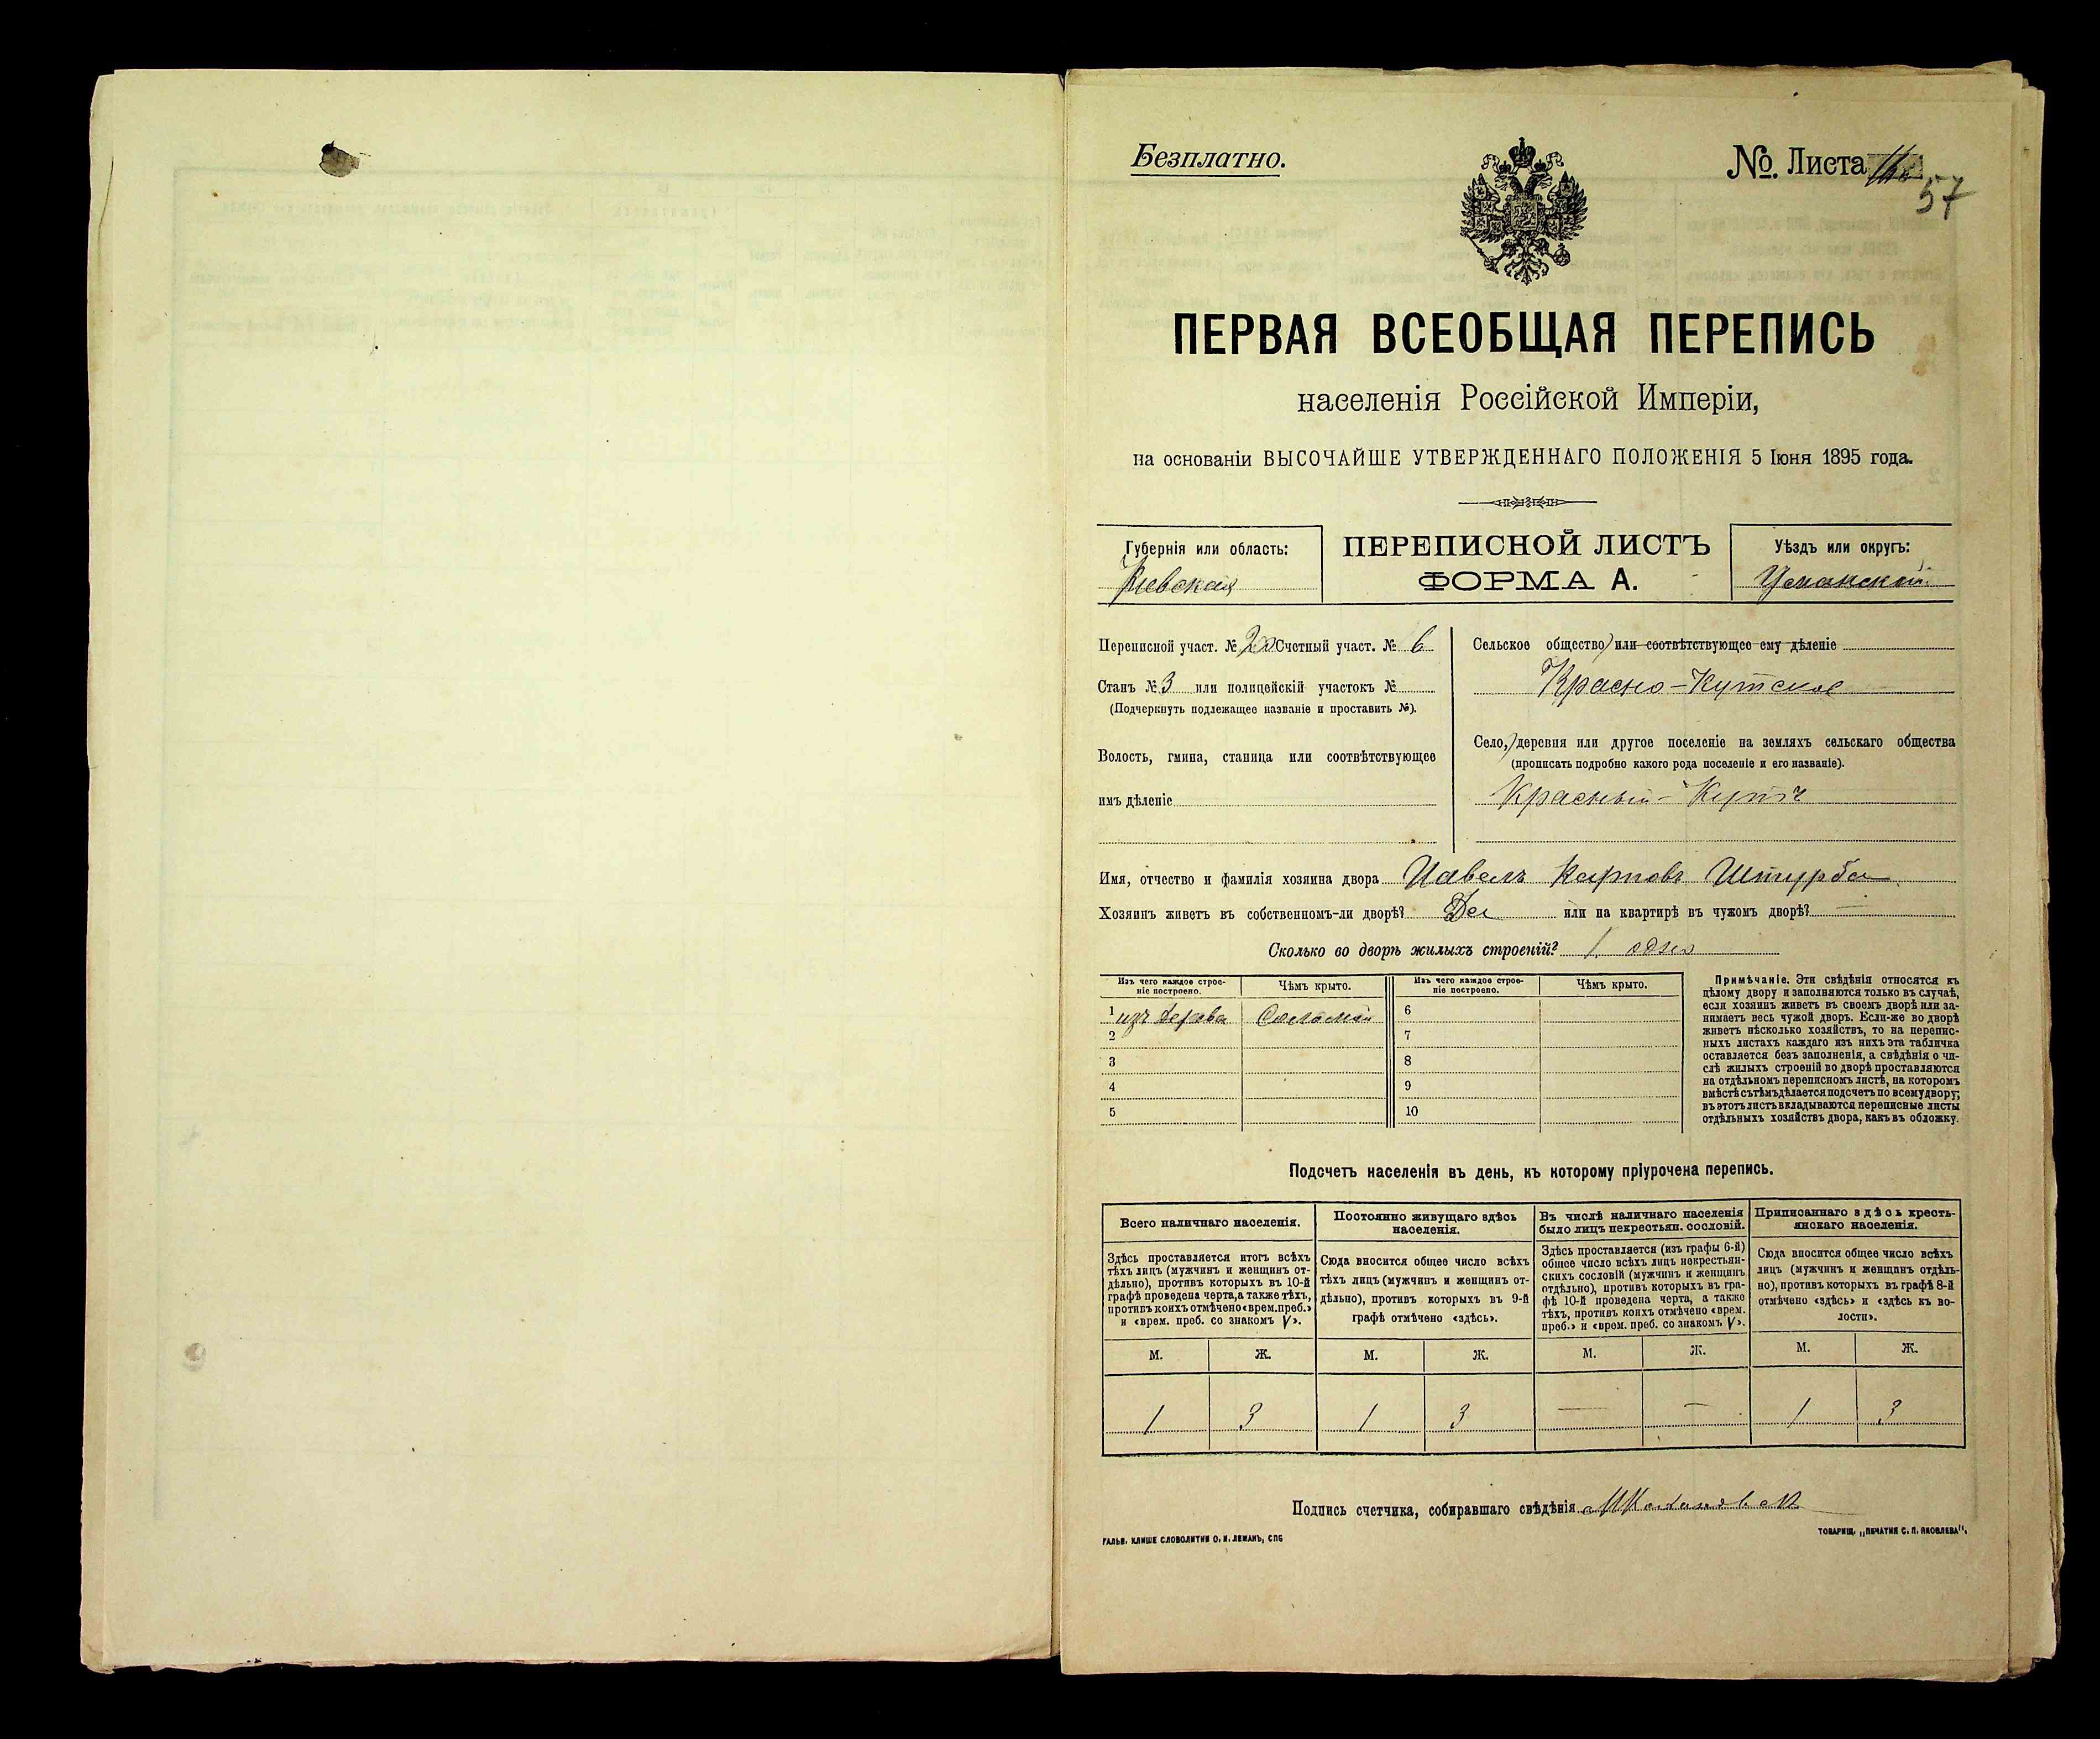 Безплатно.
№. Листа
57
ПЕРВАЯ ВСЕОБЩАЯ ПЕРЕПИСЬ
населенія Россійской Имперіи,
на основаніи ВЫСОЧАЙШЕ УТВЕРЖДЕННАГО ПОЛОЖЕНІЯ 5 Іюня 1895 года.
Губернія или область:
Кіевская
ПЕРЕПИСНОЙ ЛИСТЪ
ФОРМА А.
Уѣздъ или округъ:
Уманскій
Переписной участ. № Счетный участ. № 6
Станъ № 3 или полицейскій участокъ №
(Подчеркнуть подлежащее названіе и проставить №).
Волость, гмина, станица или соотвѣтствующее
имъ дѣленіе
Сельское общество или соотвѣтствующее ему дѣленіе
Красно-Кутское
Село, деревня или другое поселеніе на земляхъ сельскаго общества
(прописать подробно какого рода поселеніе и его названіе).
Красный-Кутъ
Имя, отчество и фамилія хозяина двора Павелъ Карповъ Штурба
Хозяинъ живетъ въ собственномъ-ли дворѣ? Да или на квартирѣ въ чужомъ дворѣ? —
Сколько во дворѣ жилыхъ строеній? 1 одно
Изъ чего каждое строе-
ніе построено.
Чѣмъ крыто.
Изъ чего каждое строе-
ніе построено.
Чѣмъ крыто.
1 изъ дерева Соломой 6
2 7
3 8
4 9
5 10
Примѣчаніе. Эти свѣдѣнія относятся къ
цѣлому двору и заполняются только въ случаѣ,
если хозяинъ живетъ въ своемъ дворѣ или за-
нимаетъ весь чужой дворъ. Если-же во дворѣ
живетъ нѣсколько хозяйствъ, то на перепис-
ныхъ листахъ каждаго изъ нихъ эта табличка
оставляется безъ заполненія, а свѣдѣнія о чи-
слѣ жилыхъ строеній во дворѣ проставляются
на отдѣльномъ переписномъ листѣ, на которомъ
вмѣстѣ съ тѣмъ дѣлается подсчетъ по всему двору;
въ этотъ листъ вкладываются переписные листы
отдѣльныхъ хозяйствъ двора, какъ въ обложку.
Подсчетъ населенія въ день, къ которому пріурочена перепись.
Всего наличнаго населенія.
Здѣсь проставляется итогъ всѣхъ
тѣхъ лицъ (мужчинъ и женщинъ от-
дѣльно), противъ которыхъ въ 10-й
графѣ проведена черта, а также тѣхъ,
противъ коихъ отмѣчено «врем. преб.»
и «врем. преб. со знакомъ V».
Постоянно живущаго здѣсь
населенія.
Сюда вносится общее число всѣхъ
тѣхъ лицъ (мужчинъ и женщинъ от-
дѣльно), противъ которыхъ въ 9-й
графѣ отмѣчено «здѣсь».
Въ числѣ наличнаго населенія
было лицъ некрестьян. сословій.
Здѣсь проставляется (изъ графы 6-й)
общее число всѣхъ лицъ некрестьян-
скихъ сословій (мужчинъ и женщинъ
отдѣльно), противъ которыхъ въ гра-
фѣ 10-й проведена черта, а также
тѣхъ, противъ коихъ отмѣчено «врем.
преб.» и «врем. преб. со знакомъ V».
Приписаннаго здѣсь кресть-
янскаго населенія.
Сюда вносится общее число всѣхъ
лицъ (мужчинъ и женщинъ отдѣль-
но), противъ которыхъ въ графѣ 8-й
отмѣчено «здѣсь» и «здѣсь къ во-
лости».
М. Ж. М. Ж. М. Ж. М. Ж.
1 3 1 3 — — 1 3
Подпись счетчика, собиравшаго свѣдѣнія
ГАЛЬВ. КЛИШЕ СЛОВОЛИТНИ О. И. ЛЕМАНЪ, СПБ
ТОВАРИЩ. „ПЕЧАТНЯ С. П. ЯКОВЛЕВА".